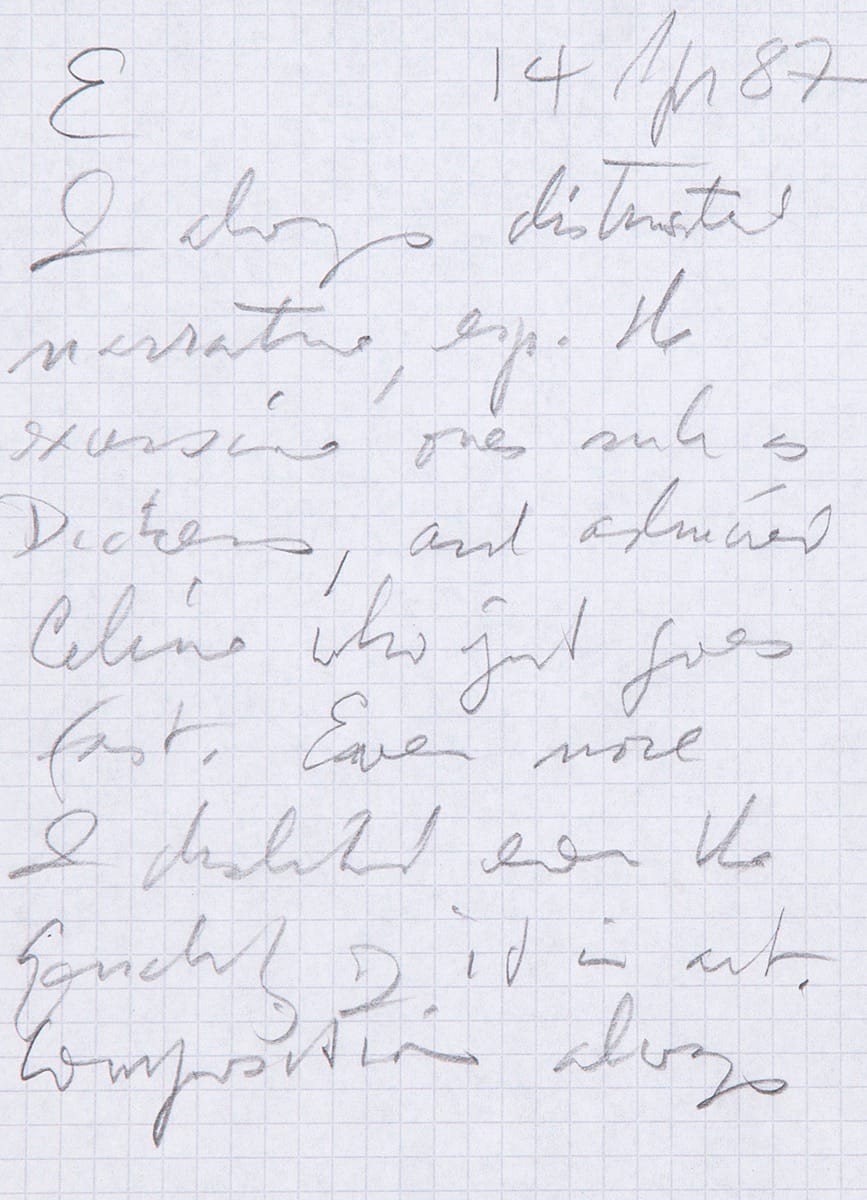 E 14 Apr 87
I always distrusted
narrative, esp. the
excursive ones such as
Dickens, and admired
Celine who just goes
fast. Even more
I disliked even the
of it in art.
Composition always